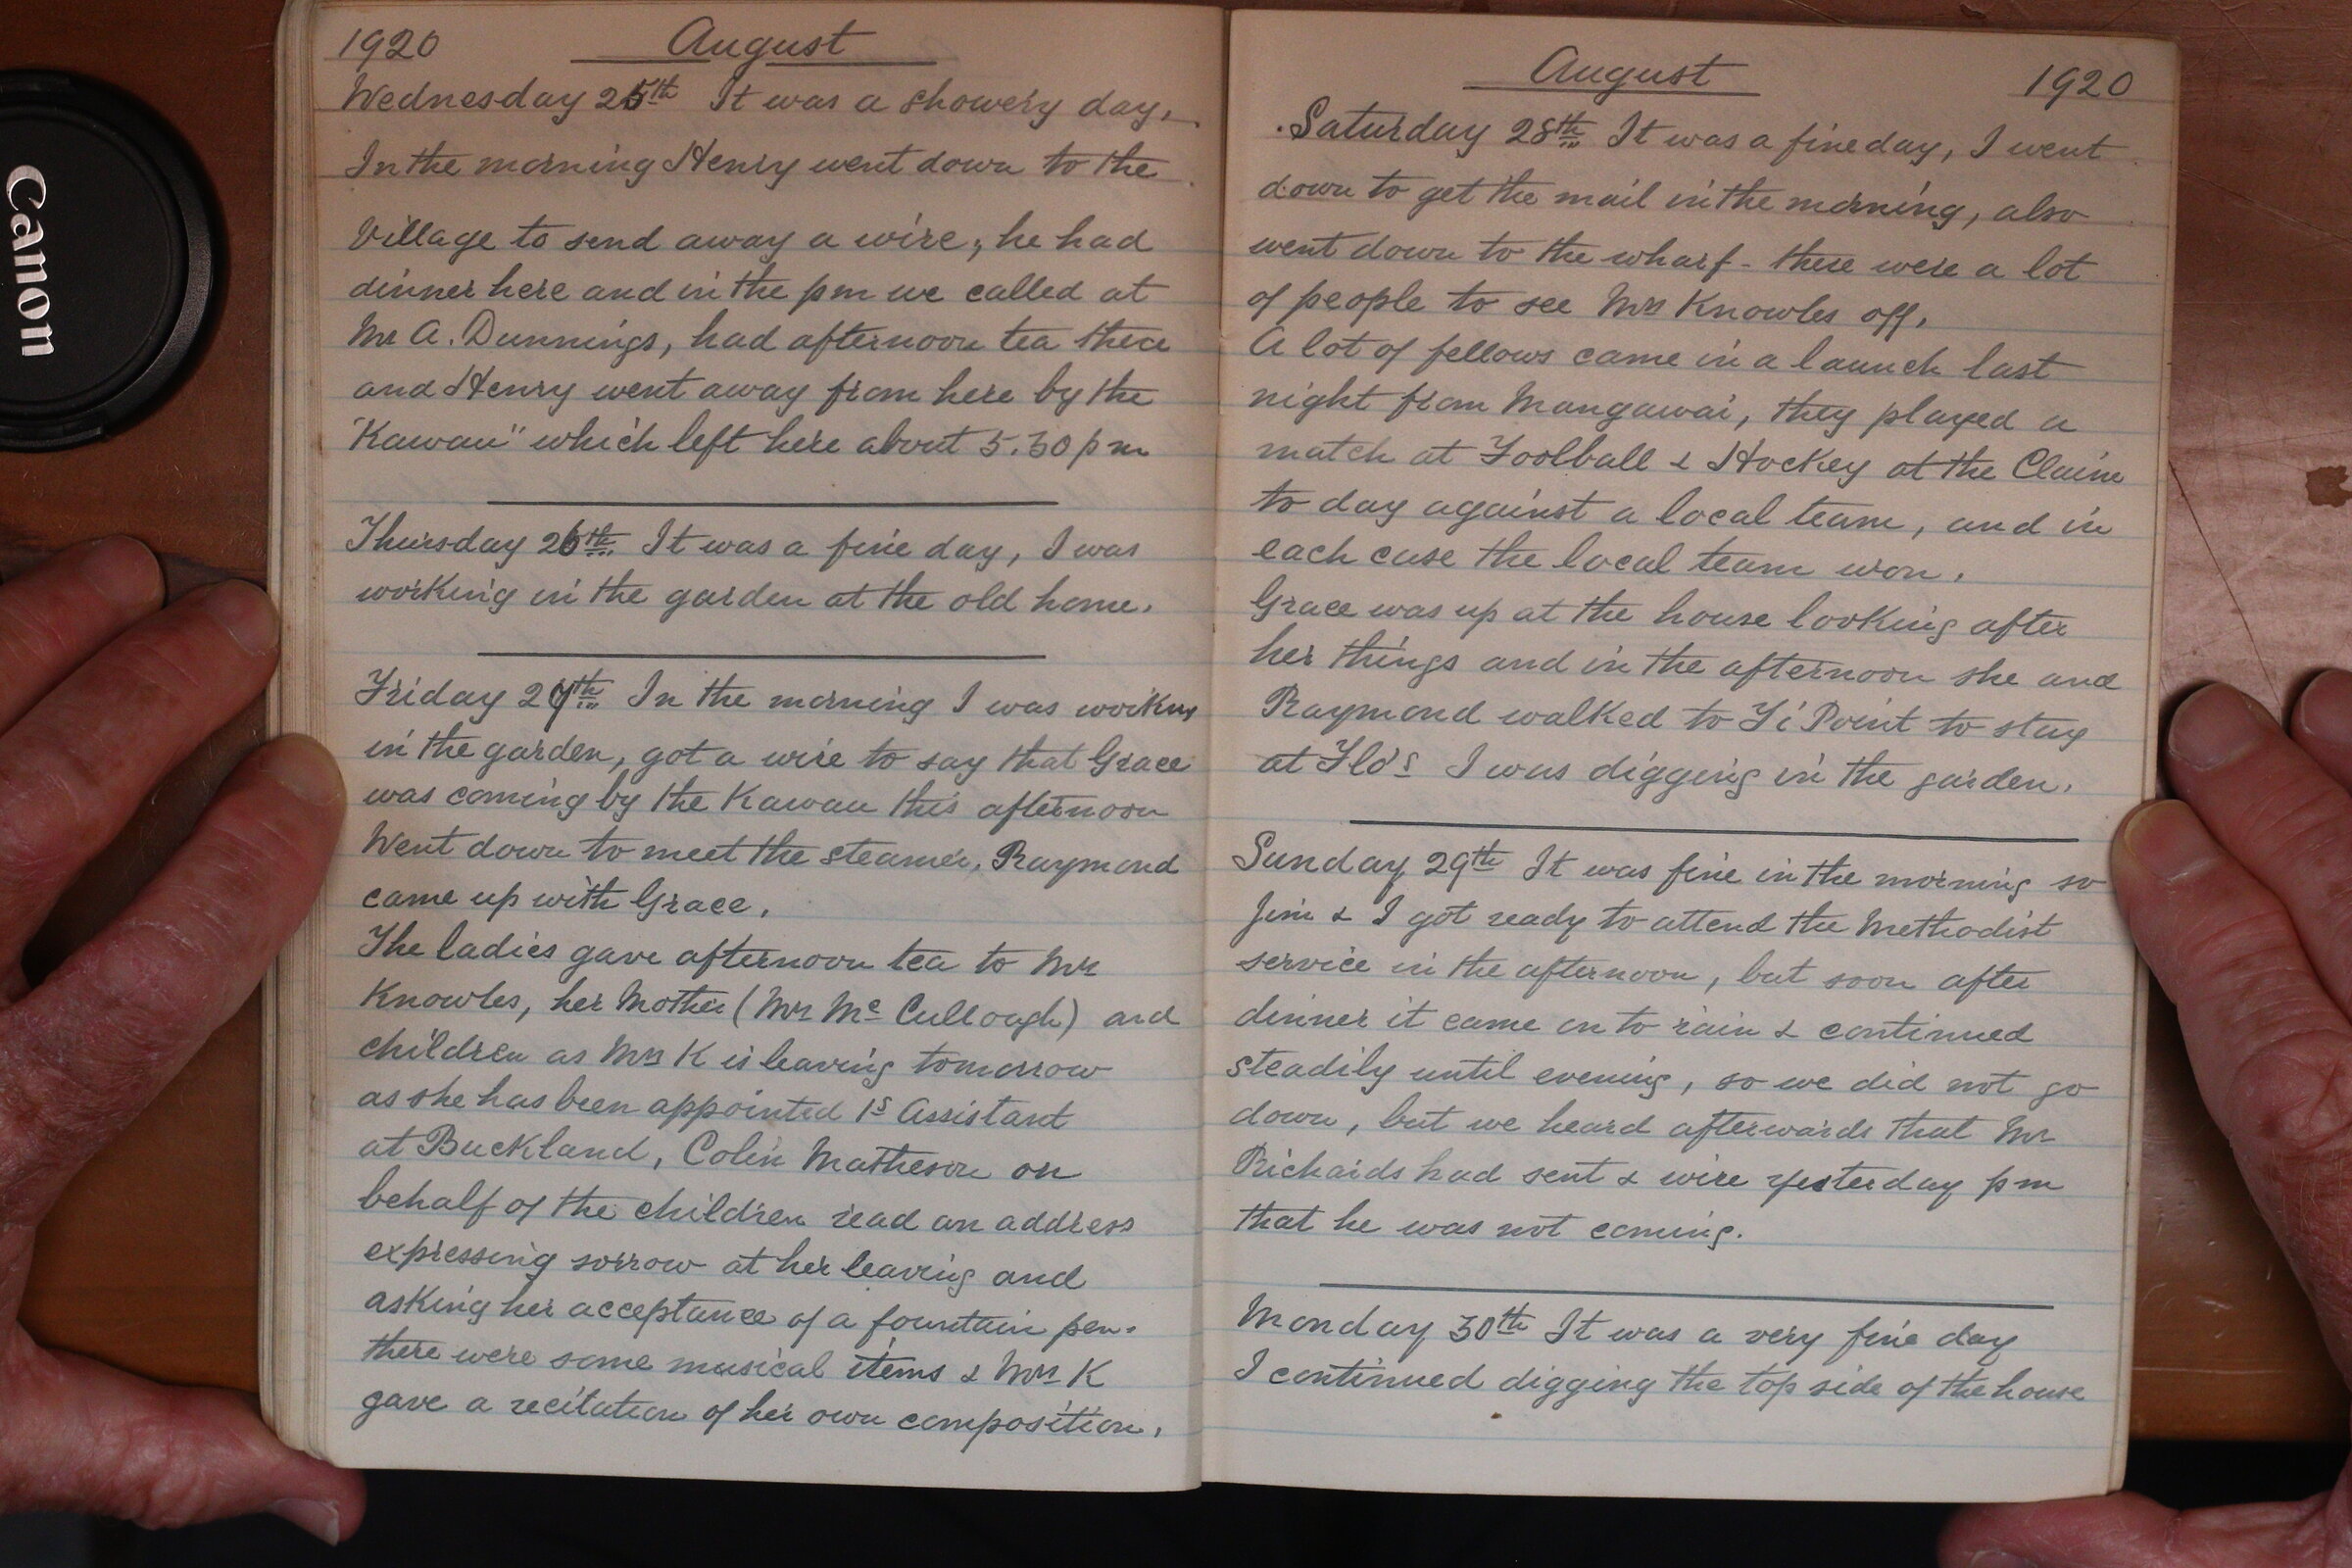 Canon
1920 August
Wednesday 25th It was a showery day,
In the morning Henry went down to the
Village to send away a wire, he had
dinner here and in the pm we called at
Mr A. Dunnings, had afternoon tea there
and Henry went away from here by the
"Kawau" which left here about 5.30 pm
Thursday 26th It was a fine day, I was
working in the garden at the old home.
Friday 27th In the morning I was working
in the garden, got a wire to say that Grace
was coming by the Kawau this afternoon
Went down to meet the steamer, Raymond
came up with Grace.
The ladies gave afternoon tea to Mrs
Knowles, her Mother (Mrs Mc Cullough) and
children as Mrs K is leaving tomorrow
as she has been appointed 1s Assistant
at Buckland, Colin Matheson on
behalf of the children read an address
expressing sorrow at her leaving and
asking her acceptance of a fountain pen.
there were some musical items & Mrs K
gave a recitation of her own composition.
August 1920
Saturday 28th It was a fine day, I went
down to get the mail in the morning, also
went down to the wharf - there were a lot
of people to see Mrs Knowles off.
A lot of fellows came in a launch last
night from Mangawai, they played a
match at Foolball & Hockey at the Claim
to day against a local team, and in
each case the local team won.
Grace was up at the house looking after
her things and in the afternoon she and
Raymond walked to Ti Point to stay
at Flo's I was digging in the garden.
Sunday 29th It was fine in the morning so
Jim & I got ready to attend the Methodist
service in the afternoon, but soon after
dinner it came on to rain & continued
steadily until evening, so we did not go
down, but we heard afterwards that Mr
Richards had sent & wire yesterday pm
that he was not coming.
Monday 30th It was a very fine day
I continued digging the top side of the house